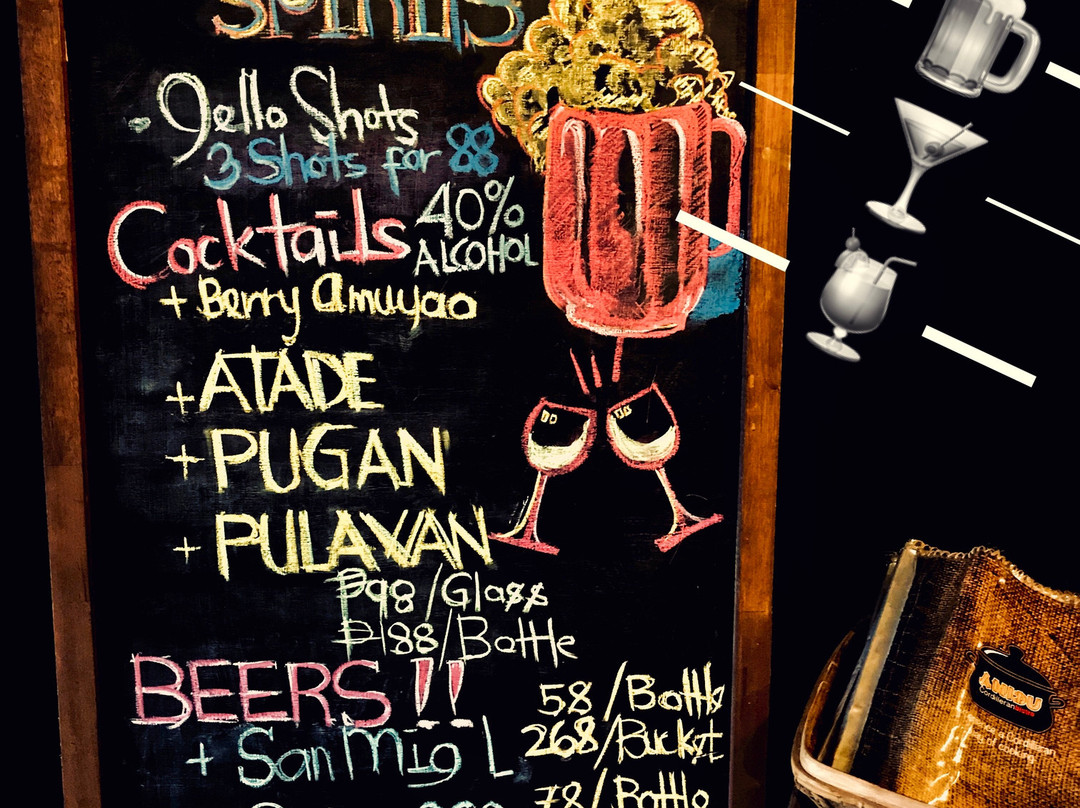 SPIRITS
• Jello Shots
3 Shots for 88
Cocktails 40% ALCOHOL
+ Berry Amuyao
+ ATADE
+ PUGAN
+ PULAWAN
₱98/Glass
₱188/Bottle
BEERS !!
58/Bottle
+ San Mig L 268/Bucket
78/Bottle
Cordilleran
of cooking